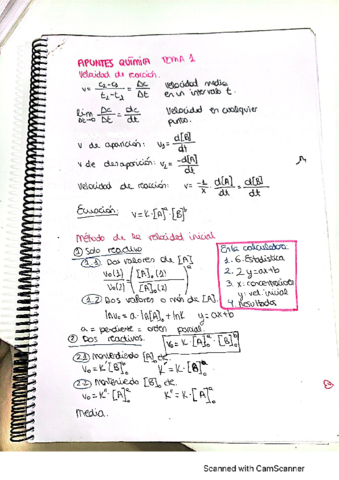 APUNTES QUÍMICA TEMA 1
Velocidad de reacción.
v = c₂-c₁ / t₂-t₁ = Δc / Δt velocidad media en un intervalo t.
lim Δt→0 Δc / Δt = dc / dt Velocidad en cualquier punto.
v de aparición: v₃ = d[B] / dt
v de desaparición: v₂ = -d[A] / dt
Velocidad de reacción: v = -1/x · d[A] / dt = d[B] / dt
Ecuación: v = K · [A]ᵃ · [B]ᵇ
Método de la velocidad inicial
① Solo reactivo
1.1 Dos valores de [A]
V₀(1) / V₀(2) = ([A]₀(1) / [A]₀(2))ᵃ
1.2 Dos valores o más de [A].
lnV₀ = a · ln[A]₀ + lnK y = ax+b
a = pendiente = orden parcial.
En la calculadora
1. 6. Estadística
2. 2 y=ax+b
3. x: concentraciones
y: vel. inicial
4. Resultados
② Dos reactivos. V₀ = K · [A]₀ᵃ · [B]₀ᵇ
2.1 manteniendo [A]₀ cte.
V₀ = K' [B]₀ᵇ K' = K · [B]₀ᵃ
2.2 Manteniendo [B]₀ cte.
V₀ = K'' · [A]₀ᵃ K'' = K · [A]₀ᵃ
Media.
Scanned with CamScanner